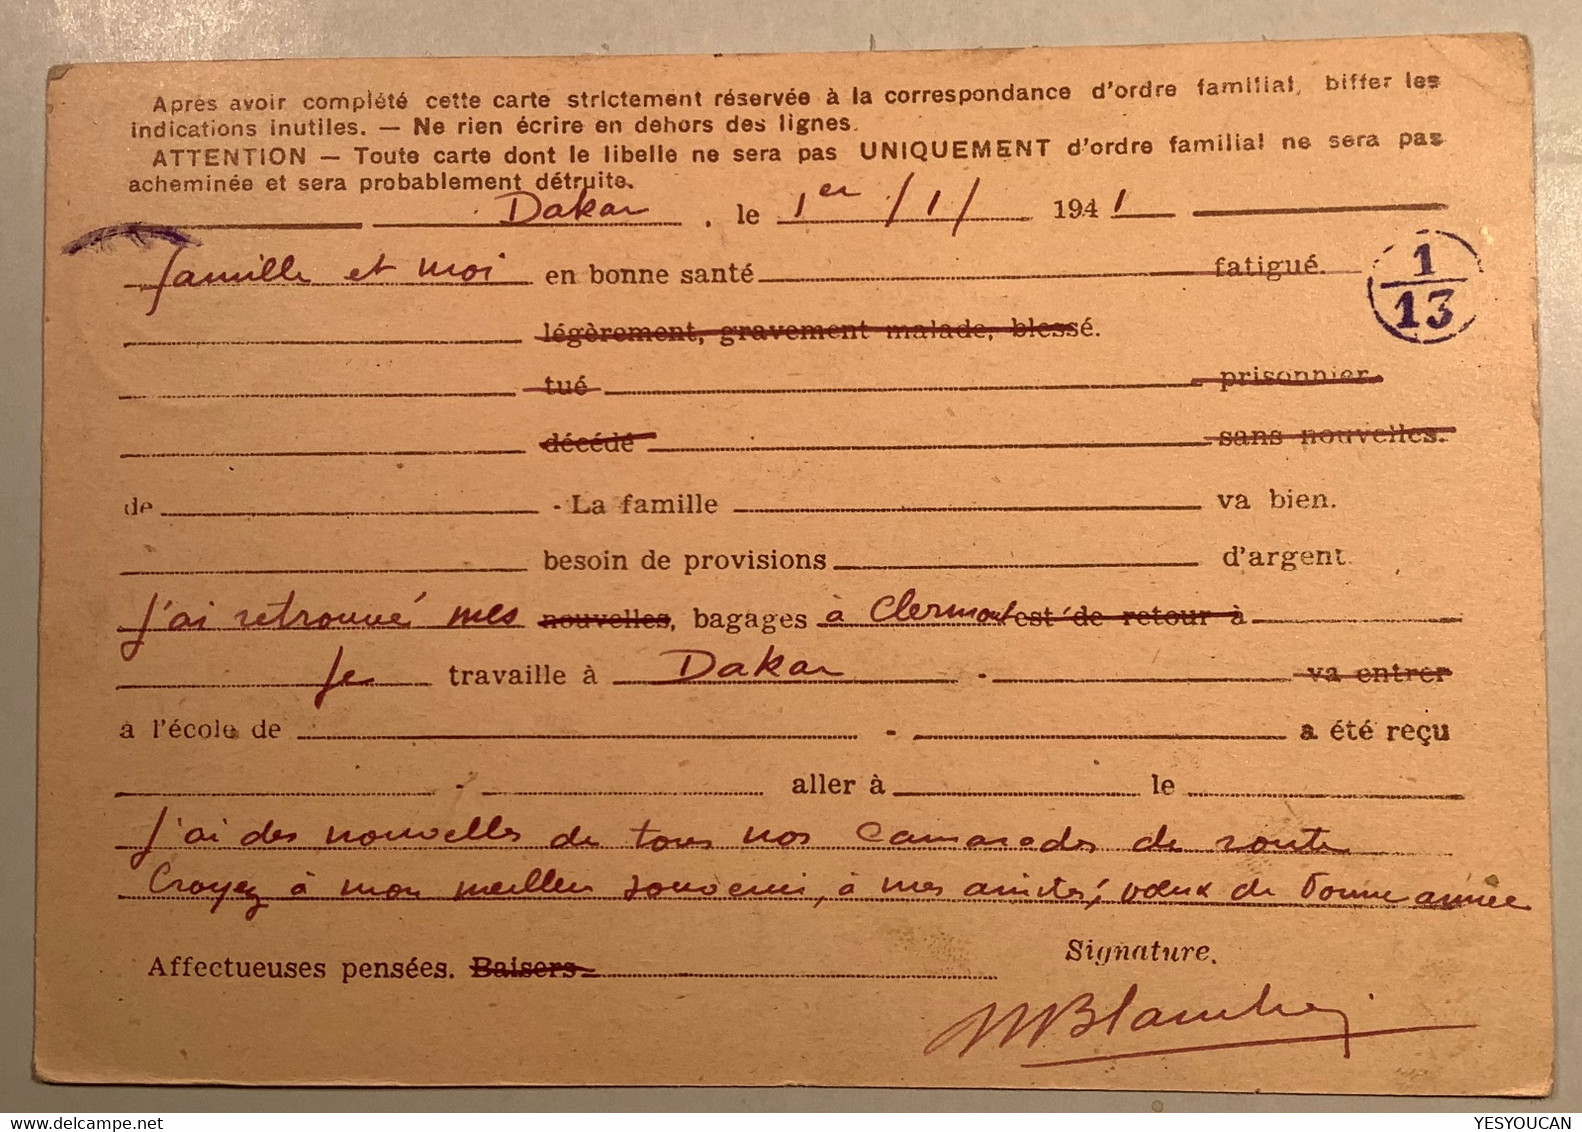 Après avoir complété cette carte strictement réservée à la correspondance d'ordre familial, biffer les
indications inutiles. — Ne rien écrire en dehors des lignes.
ATTENTION — Toute carte dont le libelle ne sera pas UNIQUEMENT d'ordre familial ne sera pas
acheminée et sera probablement détruite.
Dakar, le 1er/1/ 1941
famille et moi en bonne santé fatigué.
1
13
légèrement, gravement malade, blessé.
tué prisonnier
décédé sans nouvelles.
de - La famille va bien.
besoin de provisions d'argent.
J'ai retrouvé mes nouvelles, bagages à Clermont est de retour à
Je travaille à Dakar - va entrer
à l'école de - a été reçu
- aller à le
J'ai des nouvelles de tous nos camarades de route
Croyez à mon meilleur souvenir, à mes amitiés, vœux de bonne année
Affectueuses pensées. Baisers
Signature.
YESYOUCAN